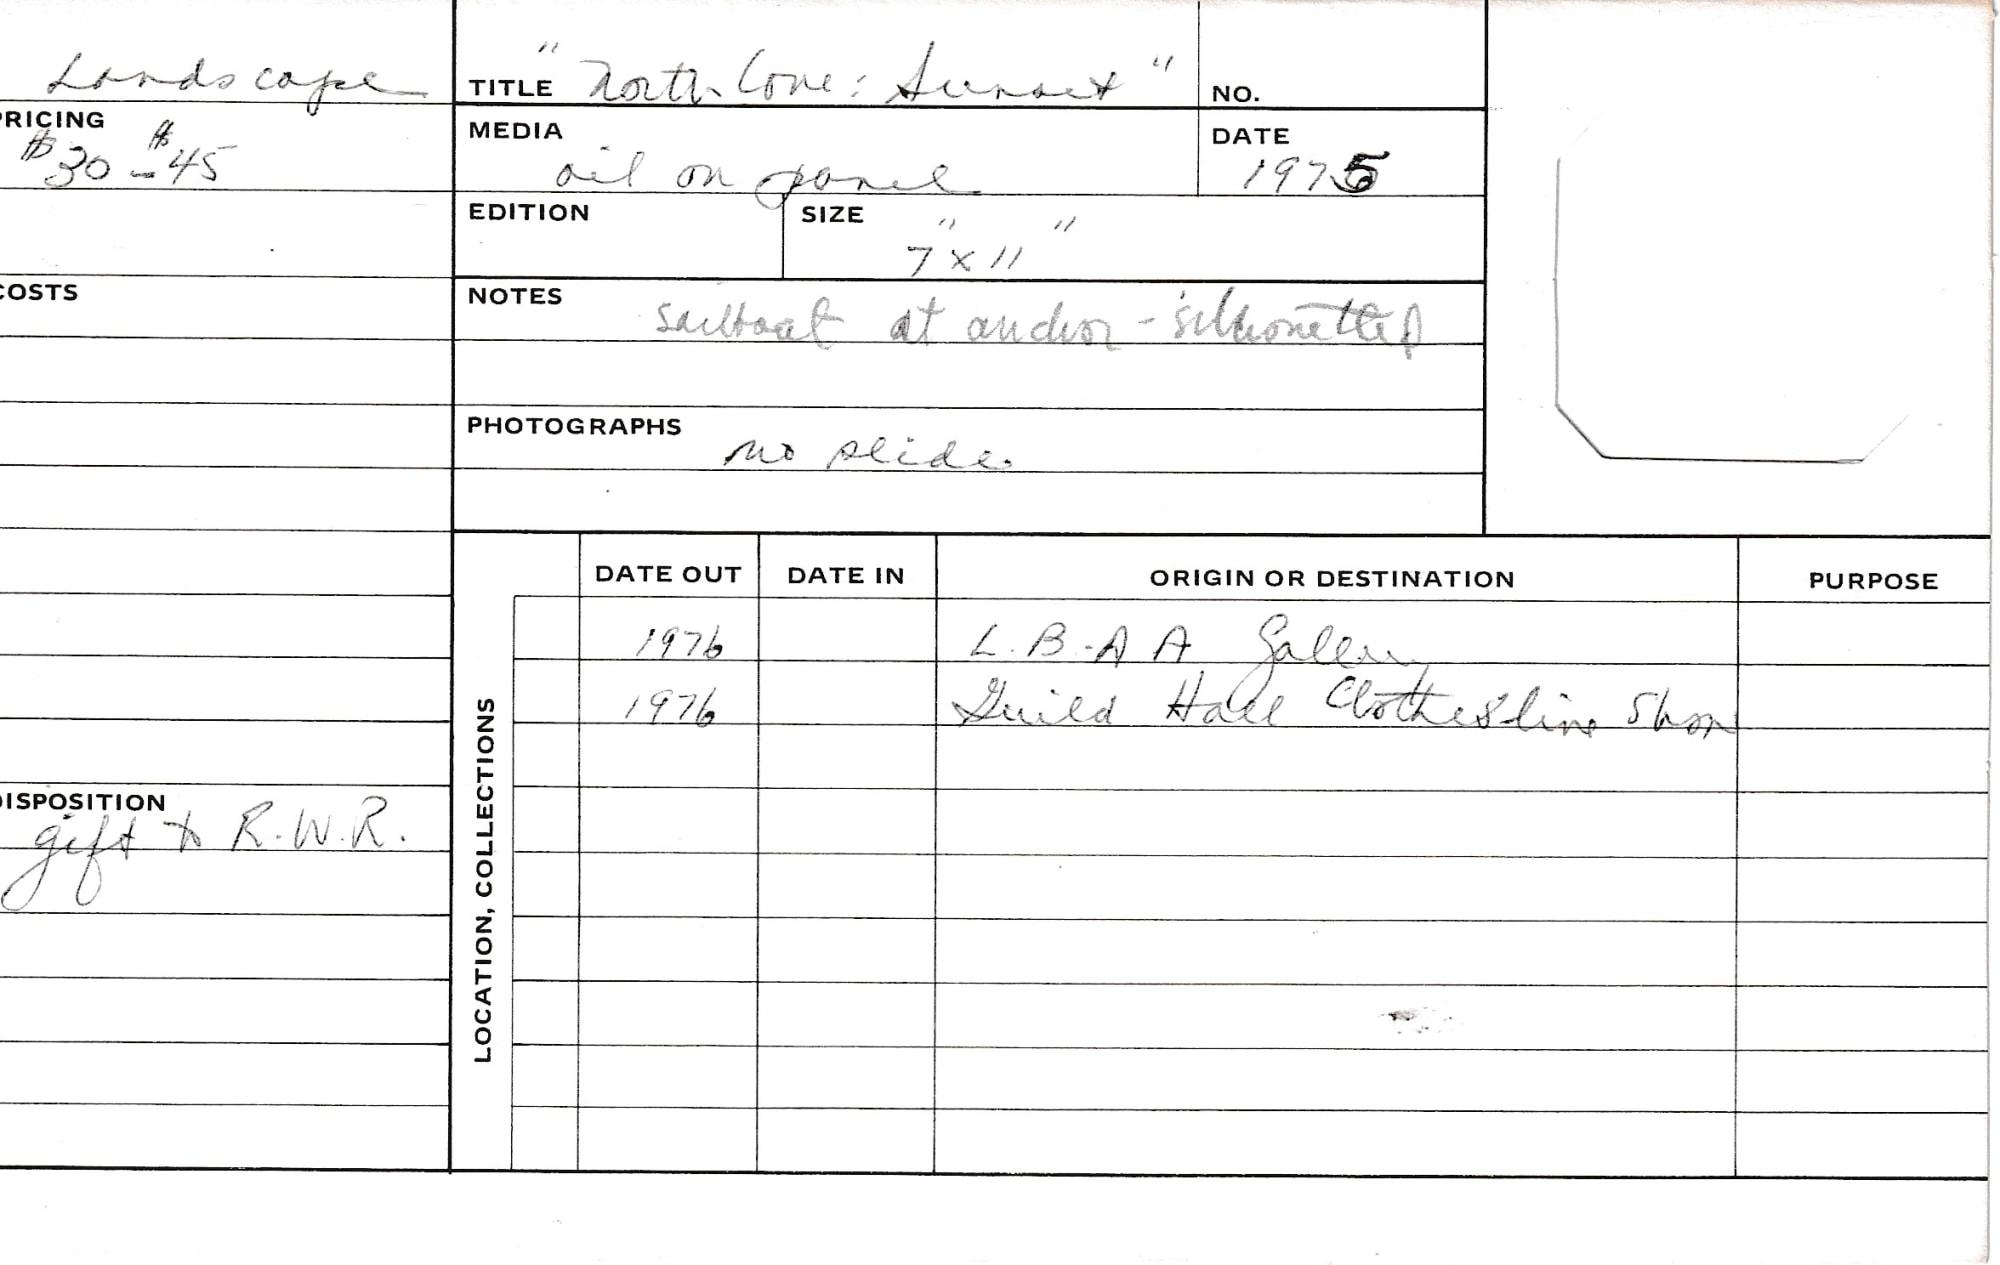 Landscape
TITLE "North Cove: Sunset"
NO.
RICING
$30 - $45
MEDIA
oil on panel
DATE
1975
EDITION
SIZE
7" x 11"
COSTS
NOTES
sailboat at anchor - silhouetted
PHOTOGRAPHS
no slide.
LOCATION, COLLECTIONS
DATE OUT DATE IN ORIGIN OR DESTINATION PURPOSE
1976 L.B.A A Gallery
1976 Guild Hall Clothesline Show
DISPOSITION
gift to R.W.R.